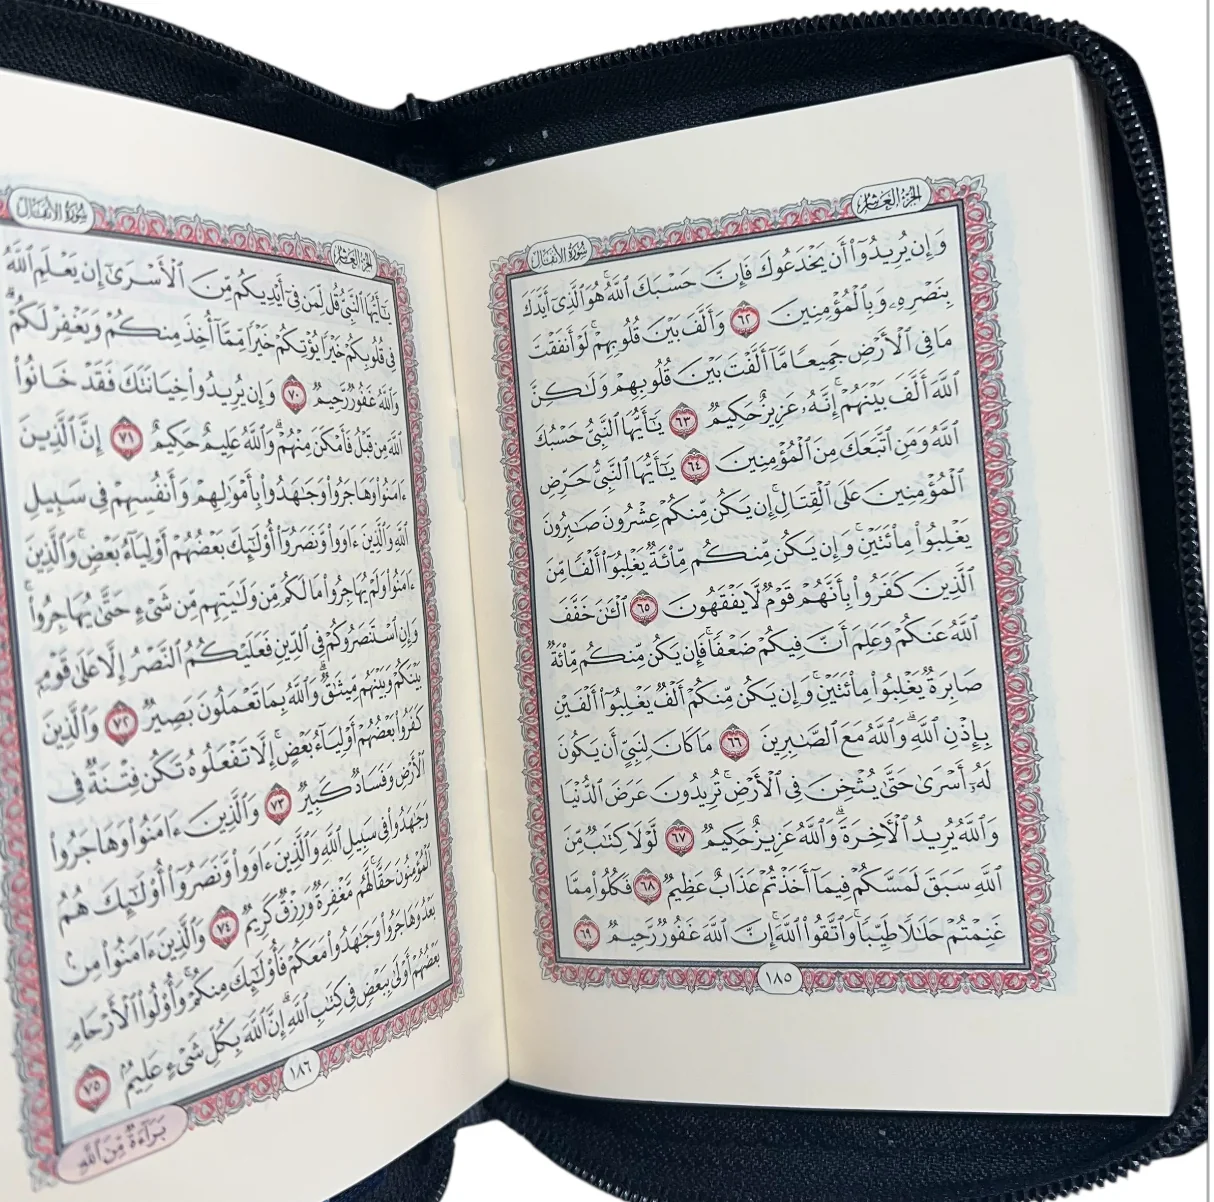 الجزء العاشر
سورة الأنفال
وَإِن يُرِيدُوٓا۟ أَن يَخْدَعُوكَ فَإِنَّ حَسْبَكَ ٱللَّهُ ۚ هُوَ ٱلَّذِىٓ أَيَّدَكَ
بِنَصْرِهِۦ وَبِٱلْمُؤْمِنِينَ ٦٢ وَأَلَّفَ بَيْنَ قُلُوبِهِمْ ۚ لَوْ أَنفَقْتَ
مَا فِى ٱلْأَرْضِ جَمِيعًا مَّآ أَلَّفْتَ بَيْنَ قُلُوبِهِمْ وَلَـٰكِنَّ
ٱللَّهَ أَلَّفَ بَيْنَهُمْ ۚ إِنَّهُۥ عَزِيزٌ حَكِيمٌ ٦٣ يَـٰٓأَيُّهَا ٱلنَّبِىُّ حَسْبُكَ
ٱللَّهُ وَمَنِ ٱتَّبَعَكَ مِنَ ٱلْمُؤْمِنِينَ ٦٤ يَـٰٓأَيُّهَا ٱلنَّبِىُّ حَرِّضِ
ٱلْمُؤْمِنِينَ عَلَى ٱلْقِتَالِ ۚ إِن يَكُن مِّنكُمْ عِشْرُونَ صَـٰبِرُونَ
يَغْلِبُوا۟ مِا۟ئَتَيْنِ ۚ وَإِن يَكُن مِّنكُم مِّا۟ئَةٌ يَغْلِبُوٓا۟ أَلْفًا مِّنَ
ٱلَّذِينَ كَفَرُوا۟ بِأَنَّهُمْ قَوْمٌ لَّا يَفْقَهُونَ ٦٥ ٱلْـَٔـٰنَ خَفَّفَ
ٱللَّهُ عَنكُمْ وَعَلِمَ أَنَّ فِيكُمْ ضَعْفًا ۚ فَإِن يَكُن مِّنكُم مِّا۟ئَةٌ
صَابِرَةٌ يَغْلِبُوا۟ مِا۟ئَتَيْنِ ۚ وَإِن يَكُن مِّنكُمْ أَلْفٌ يَغْلِبُوٓا۟ أَلْفَيْنِ
بِإِذْنِ ٱللَّهِ ۗ وَٱللَّهُ مَعَ ٱلصَّـٰبِرِينَ ٦٦ مَا كَانَ لِنَبِىٍّ أَن يَكُونَ
لَهُۥٓ أَسْرَىٰ حَتَّىٰ يُثْخِنَ فِى ٱلْأَرْضِ ۚ تُرِيدُونَ عَرَضَ ٱلدُّنْيَا
وَٱللَّهُ يُرِيدُ ٱلْـَٔاخِرَةَ ۗ وَٱللَّهُ عَزِيزٌ حَكِيمٌ ٦٧ لَّوْلَا كِتَـٰبٌ مِّنَ
ٱللَّهِ سَبَقَ لَمَسَّكُمْ فِيمَآ أَخَذْتُمْ عَذَابٌ عَظِيمٌ ٦٨ فَكُلُوا۟ مِمَّا
غَنِمْتُمْ حَلَـٰلًا طَيِّبًا ۚ وَٱتَّقُوا۟ ٱللَّهَ ۚ إِنَّ ٱللَّهَ غَفُورٌ رَّحِيمٌ ٦٩
١٨٥
الجزء العاشر
سورة الأنفال
يَـٰٓأَيُّهَا ٱلنَّبِىُّ قُل لِّمَن فِىٓ أَيْدِيكُم مِّنَ ٱلْأَسْرَىٰٓ إِن يَعْلَمِ ٱللَّهُ
فِى قُلُوبِكُمْ خَيْرًا يُؤْتِكُمْ خَيْرًا مِّمَّآ أُخِذَ مِنكُمْ وَيَغْفِرْ لَكُمْ ۗ
وَٱللَّهُ غَفُورٌ رَّحِيمٌ ٧٠ وَإِن يُرِيدُوا۟ خِيَانَتَكَ فَقَدْ خَانُوا۟
ٱللَّهَ مِن قَبْلُ فَأَمْكَنَ مِنْهُمْ ۗ وَٱللَّهُ عَلِيمٌ حَكِيمٌ ٧١ إِنَّ ٱلَّذِينَ
ءَامَنُوا۟ وَهَاجَرُوا۟ وَجَـٰهَدُوا۟ بِأَمْوَٰلِهِمْ وَأَنفُسِهِمْ فِى سَبِيلِ
ٱللَّهِ وَٱلَّذِينَ ءَاوَوا۟ وَّنَصَرُوٓا۟ أُو۟لَـٰٓئِكَ بَعْضُهُمْ أَوْلِيَآءُ بَعْضٍ ۚ وَٱلَّذِينَ
ءَامَنُوا۟ وَلَمْ يُهَاجِرُوا۟ مَا لَكُم مِّن وَلَـٰيَتِهِم مِّن شَىْءٍ حَتَّىٰ يُهَاجِرُوا۟ ۚ
وَإِنِ ٱسْتَنصَرُوكُمْ فِى ٱلدِّينِ فَعَلَيْكُمُ ٱلنَّصْرُ إِلَّا عَلَىٰ قَوْمٍۭ
بَيْنَكُمْ وَبَيْنَهُم مِّيثَـٰقٌ ۗ وَٱللَّهُ بِمَا تَعْمَلُونَ بَصِيرٌ ٧٢ وَٱلَّذِينَ
كَفَرُوا۟ بَعْضُهُمْ أَوْلِيَآءُ بَعْضٍ ۚ إِلَّا تَفْعَلُوهُ تَكُن فِتْنَةٌ فِى
ٱلْأَرْضِ وَفَسَادٌ كَبِيرٌ ٧٣ وَٱلَّذِينَ ءَامَنُوا۟ وَهَاجَرُوا۟
وَجَـٰهَدُوا۟ فِى سَبِيلِ ٱللَّهِ وَٱلَّذِينَ ءَاوَوا۟ وَّنَصَرُوٓا۟ أُو۟لَـٰٓئِكَ هُمُ
ٱلْمُؤْمِنُونَ حَقًّا ۚ لَّهُم مَّغْفِرَةٌ وَرِزْقٌ كَرِيمٌ ٧٤ وَٱلَّذِينَ ءَامَنُوا۟ مِنۢ
بَعْدُ وَهَاجَرُوا۟ وَجَـٰهَدُوا۟ مَعَكُمْ فَأُو۟لَـٰٓئِكَ مِنكُمْ ۚ وَأُو۟لُوا۟ ٱلْأَرْحَامِ
بَعْضُهُمْ أَوْلَىٰ بِبَعْضٍ فِى كِتَـٰبِ ٱللَّهِ ۗ إِنَّ ٱللَّهَ بِكُلِّ شَىْءٍ عَلِيمٌۢ ٧٥
١٨٦
بَرَآءَةٌ مِّنَ ٱللَّهِ